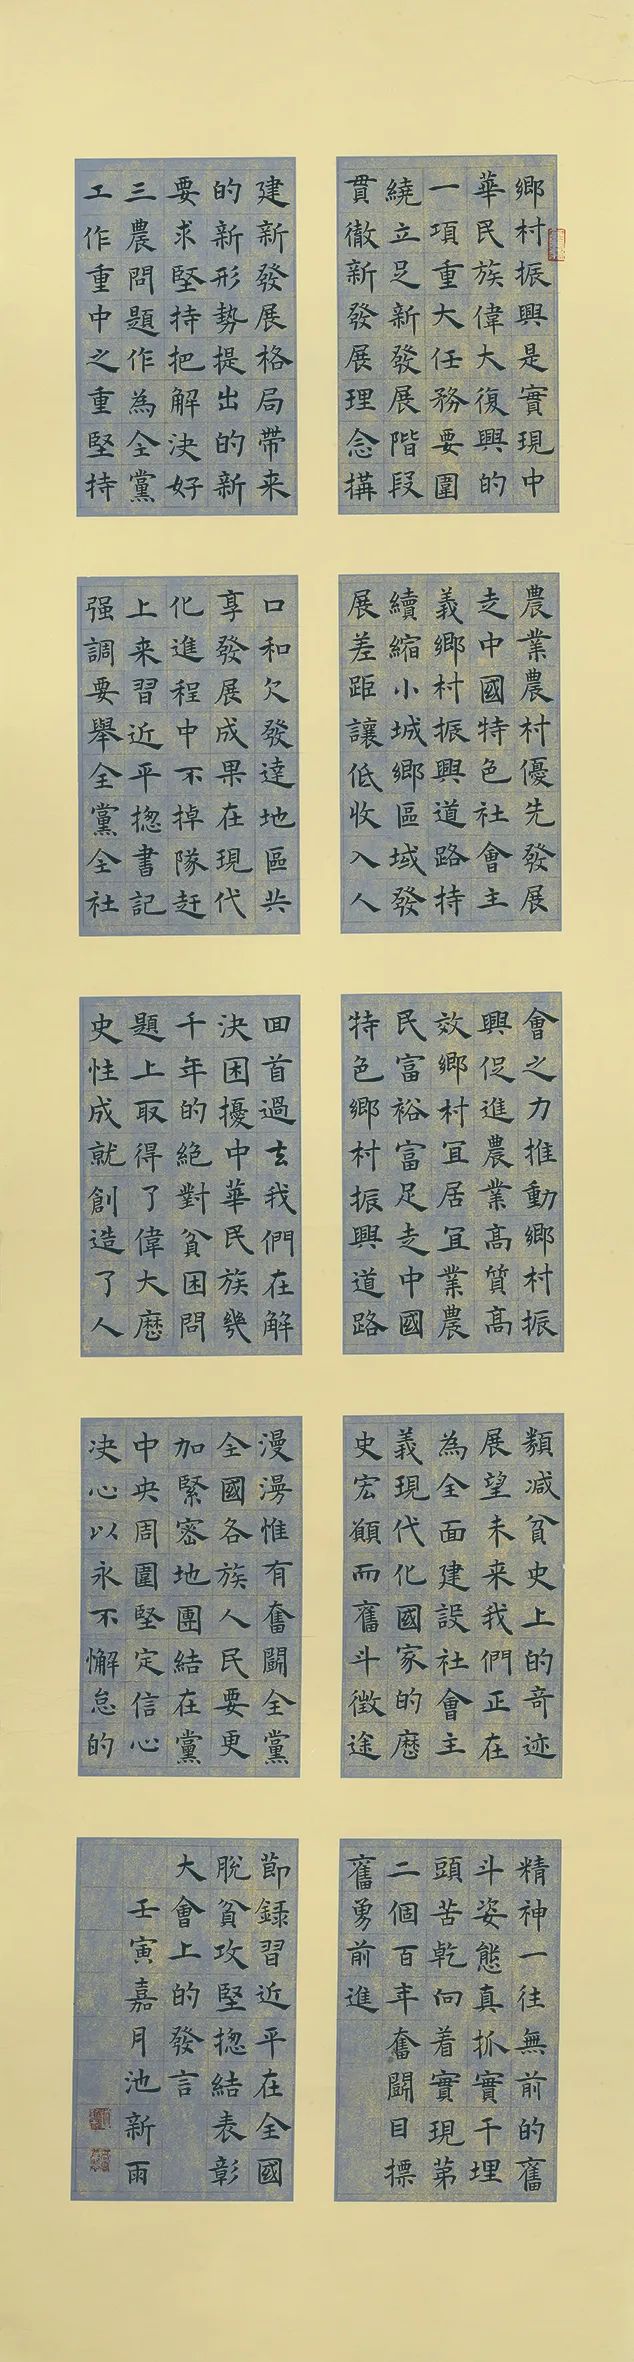 鄉村振興是實現中
華民族偉大復興的
一項重大任務要圍
繞立足新發展階段
貫徹新發展理念構
建新發展格局帶来
的新形勢提出的新
要求堅持把解決好
三農問題作為全黨
工作重中之重堅持
農業農村優先發展
走中國特色社會主
義鄉村振興道路持
續縮小城鄉區域發
展差距讓低收入人
口和欠發達地區共
享發展成果在現代
化進程中不掉隊赶
上来習近平揔書記
强調要舉全黨全社
會之力推動鄉村振
興促進農業高質高
效鄉村宜居宜業農
民富裕富足走中國
特色鄉村振興道路
回首過去我們在解
決困擾中華民族幾
千年的絕對貧困問
題上取得了偉大歷
史性成就創造了人
類减貧史上的奇迹
展望未来我們正在
為全面建設社會主
義現代化國家的歷
史宏願而奮斗徵途
漫漫惟有奮鬪全黨
全國各族人民要更
加緊密地團結在黨
中央周圍堅定信心
决心以永不懈怠的
精神一往無前的奮
斗姿態真抓實干埋
頭苦乾向着實現第
二個百年奮鬪目標
奮勇前進
節錄習近平在全國
脫貧攻堅揔結表彰
大會上的發言
壬寅嘉月池新雨